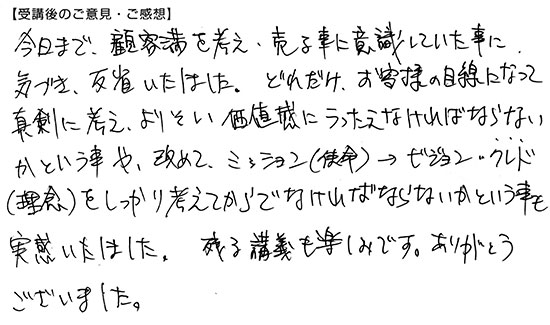 【受講後のご意見・ご感想】
今日まで、顧客満を考え・売る事に意識していた事に
気づき、反省いたしました。どれだけ、お客様の目線になって
真剣に考え、よりそい価値感にうったえなければならない
かという事や、改めて、ミッション(使命)→ビジョン・クレド
(理念)をしっかり考えてからでなければならないかという事も
実感いたしました。残る講義も楽しみです。ありがとう
ございました。